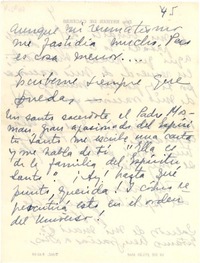 45
aunque mi reumatismo
me fastidia mucho. Pero
es cosa menor...
Escríbeme siempre que
puedas,
Un santo sacerdote, el Padre
gran apasionado del Espíri-
tu Santo me escribe una carta
y me habla de ti: "Ella es
de la familia del Espíritu
Santo". ¡Ay! hasta qué
punto, querida! y cómo re-
percutirá esto en el orden
del Universo!